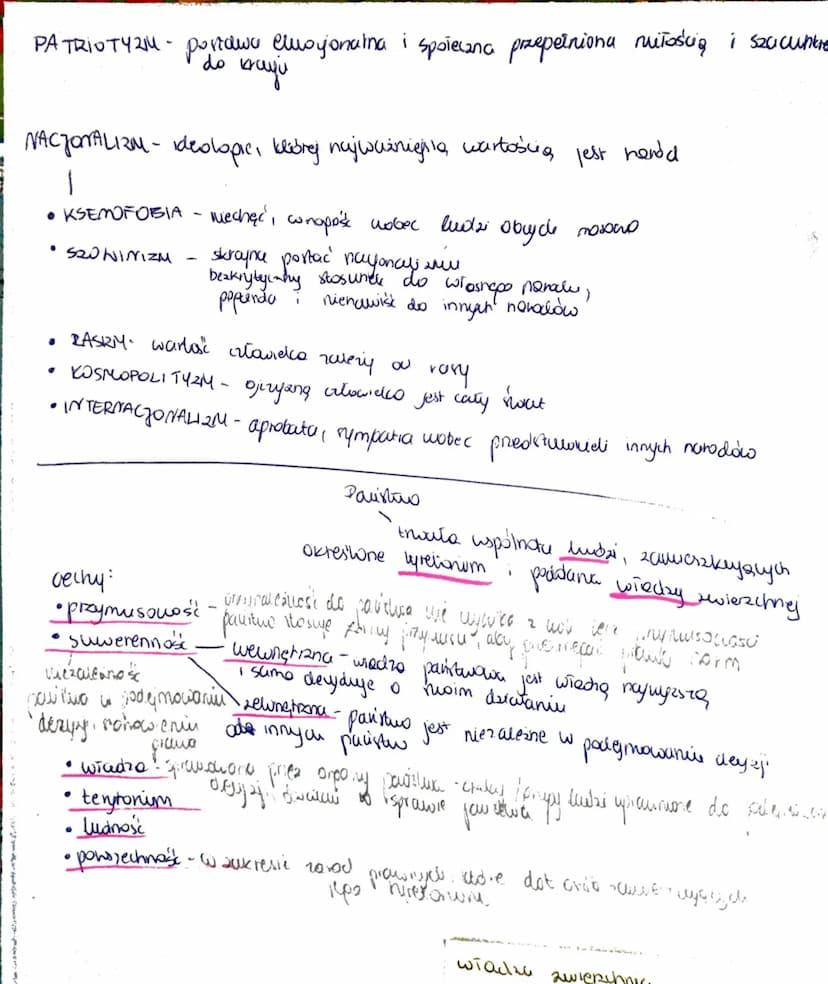 PATRIOTYZM - postawa emocjonalna i społeczna przepełniona miłością i szacunkie
do kraju
NACJONALIZM - ideologia, której najważniejszą wartością jest naród
• KSENOFOBIA - niechęć, wrogość wobec ludzi obcych
• SZOWINIZM - skrajna postać nacjonalizmu
bezkrytyczny stosunek do własnego narodu,
pogarda i nienawiść do innych narodów
• RASIZM - wartość człowieka zależy od rasy
• KOSMOPOLITYZM - ojczyzną człowieka jest cały świat
• INTERNACJONALIZM - aprobata, sympatia wobec przedstawicieli innych narodów
Państwo
trwała wspólnota ludzi, zamieszkujących
określone terytorium i poddana władzy zwierzchniej
cechy:
• przymusowość - przynależność do państwa nie wynika z
państwo stosuje przymusu, aby norm
• suwerenność - wewnętrzna - władza państwowa jest władzą najwyższą
i sama decyduje o swoim działaniu
niezależność
państwa w podejmowaniu
decyzji, stanowieniu
prawa
zewnętrzna - państwo jest niezależne w podejmowaniu decyzji
od innych państw
• władza - sprawowana przez organy państwa - grupy ludzi uprawnione do
decyzji, w sprawie państwa
• terytorium
• ludność
• powszechność - w zakresie zasad prawnych, które dot. osób
jego terytorium
władza zwierzchni